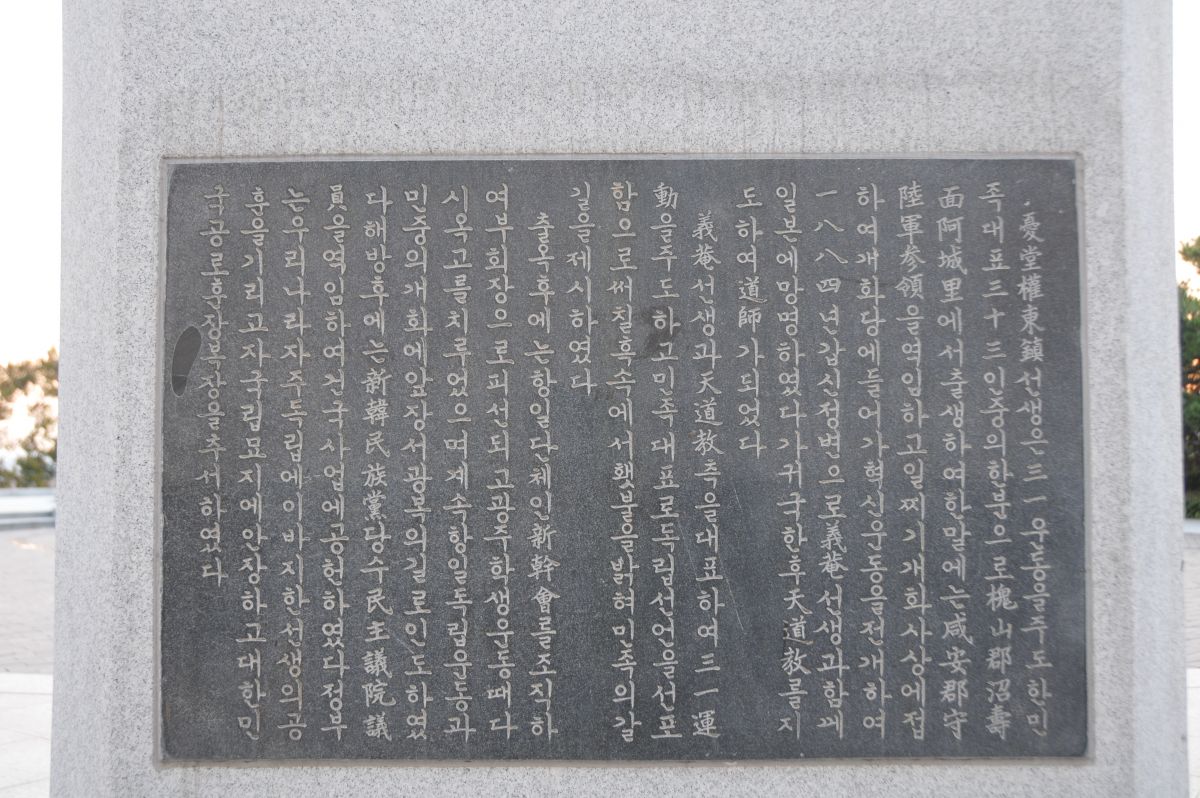 憂堂權東鎭선생은三一운동을주도한민
족대표三十三인중의한분으로槐山郡沼壽
面阿城里에서출생하여한말에는咸安郡守
陸軍參領을역임하고일찌기개화사상에접
하여개화당에들어가혁신운동을전개하여
一八八四년갑신정변으로義菴선생과함께
일본에망명하였다가귀국한후天道敎를지
도하여道師가되었다
義菴선생과天道敎측을대표하여三一運
動을주도하고민족대표로독립선언을선포
함으로써칠흑속에서횃불을밝혀민족의갈
길을제시하였다
출옥후에는항일단체인新幹會를조직하
여부회장으로피선되고광주학생운동때다
시옥고를치루었으며계속항일독립운동과
민중의개화에앞장서광복의길로인도하였
다해방후에는新韓民族黨당수民主議院議
員을역임하여건국사업에공헌하였다정부
는우리나라자주독립에이바지한선생의공
훈을기리고자국립묘지에안장하고대한민
국공로훈장복장을추서하였다